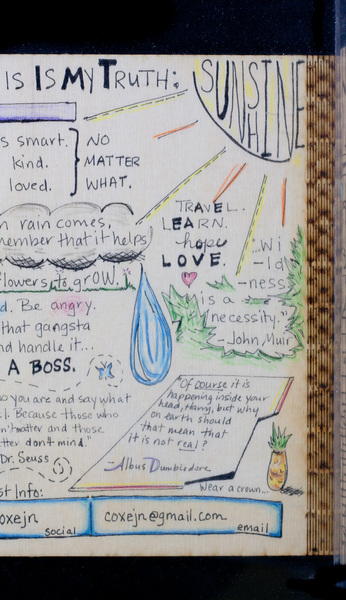 IS IS MY TRUTH:
SUNSHINE
s smart.
kind.
loved.
NO
MATTER
WHAT.
TRAVEL.
LEARN.
hope
LOVE.
n rain comes,
member that it helps
flowers to grow.
"Wi
- ld
-ness
is a
necessity."
- John Muir
d. Be angry.
that gangsta
nd handle it...
A BOSS.
o you are and say what
l. Because those who
n't matter and those
tter don't mind."
Dr. Seuss
"Of course it is
happening inside your
head, Harry, but why
on earth should
that mean that
it is not real?
-Albus Dumbledore
Wear a crown...
st Info:
oxejn
social
coxejn@gmail.com
email